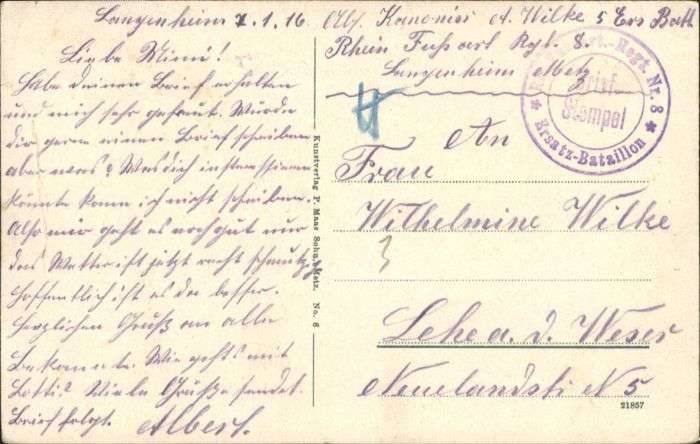 Langenheim 7.1.16
Liebe Mimi!
Habe deinen Brief erhalten
und mich sehr gefreut. Würde
dir gern einen Brief schreiben
aber was? Was dich
könnte kann ich nicht schreiben.
Also mir geht es noch gut nur
das Wetter ist jetzt recht schmutzig
hoffentlich ist es da besser.
Herzlichen Gruß an alle
Bekannte. Wie geht's mit
Lotti? Viele Grüße sendet
Brief folgt. Albert.
Kunstverlag P. Maas Sohn, Metz. No. 6
Abs. Kanonier A. Wilke 5 Ers Batt.
Rhein Fussart Rgt. 8.
Langenheim Metz
Regt. Nr. 8
Brief
Stempel
Ersatz-Bataillon
An
Frau
Wilhelmine Wilke
Lehe a. d. Weser
Neuelandstr N 5
21857